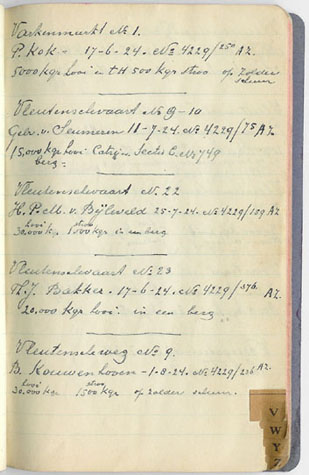 Varkenmarkt No 1.
P. Kok. - 17-6-24. No 4229/250 A.Z.
5000 kgr hooi en 500 kgr stroo op zolder
schuur
Vleutenschevaart No 9-10
Gebr. v. Seumeren 11-7-24. No 4229/75 A.Z.
15,000 kgr hooi Sectie C. No 749
berg.
Vleutenschevaart No. 22
H. P. M. v. Bijleveld 25-7-24. No 4229/189 A.Z.
hooi stroo
30,000 kgr 1500 kgr in een berg
Vleutenschevaart No. 23
Th. J. Bakker. - 17-6-24. No 4229/376. A.Z.
20,000 kgr hooi in een berg
Vleutenscheweg No 9.
B. Kouwenhoven - 1-8-24. No 4229/236 A.Z.
hooi stroo
30,000 kgr 1500 kgr op zolder schuur.
V
W
Y
Z